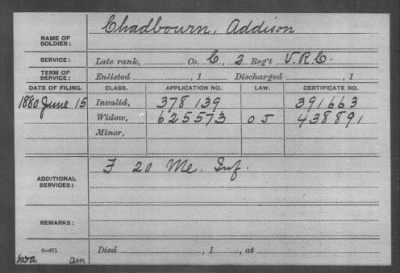 NAME OF SOLDIER: Chadbourn, Addison
SERVICE: Late rank, Co. C, 2 Reg't V.R.C.
TERM OF SERVICE: Enlisted , 1 Discharged , 1
DATE OF FILING. CLASS. APPLICATION NO. LAW. CERTIFICATE NO.
1880 June 15 Invalid, 378139 391663
Widow, 625573 O J 438891
Minor,
ADDITIONAL SERVICES: F 20 Me. Inf.
REMARKS:
Died , 1 , at